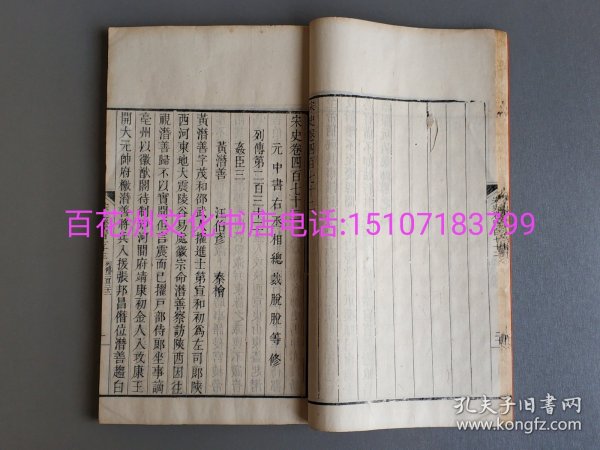 宋史卷四百七十
元中書右丞相總裁脫脫等修
列傳第二百三十
姦臣三
黃潛善 汪伯彥 秦檜
黃潛善字茂和邵武人擢進士第宣和初爲左司郎陝
西河東地大震陵谷易處徽宗命潛善察訪陝西因往
視潛善歸不以實聞但言震而已擢戶部侍郎坐事謫
亳州以徽猷閣待制知河間府靖康初金人入攻康王
開大元帥府檄潛善將兵入援張邦昌僭位潛善趨白
百花洲文化书店电话:15107183799
孔夫子旧书网
www.kongfz.com